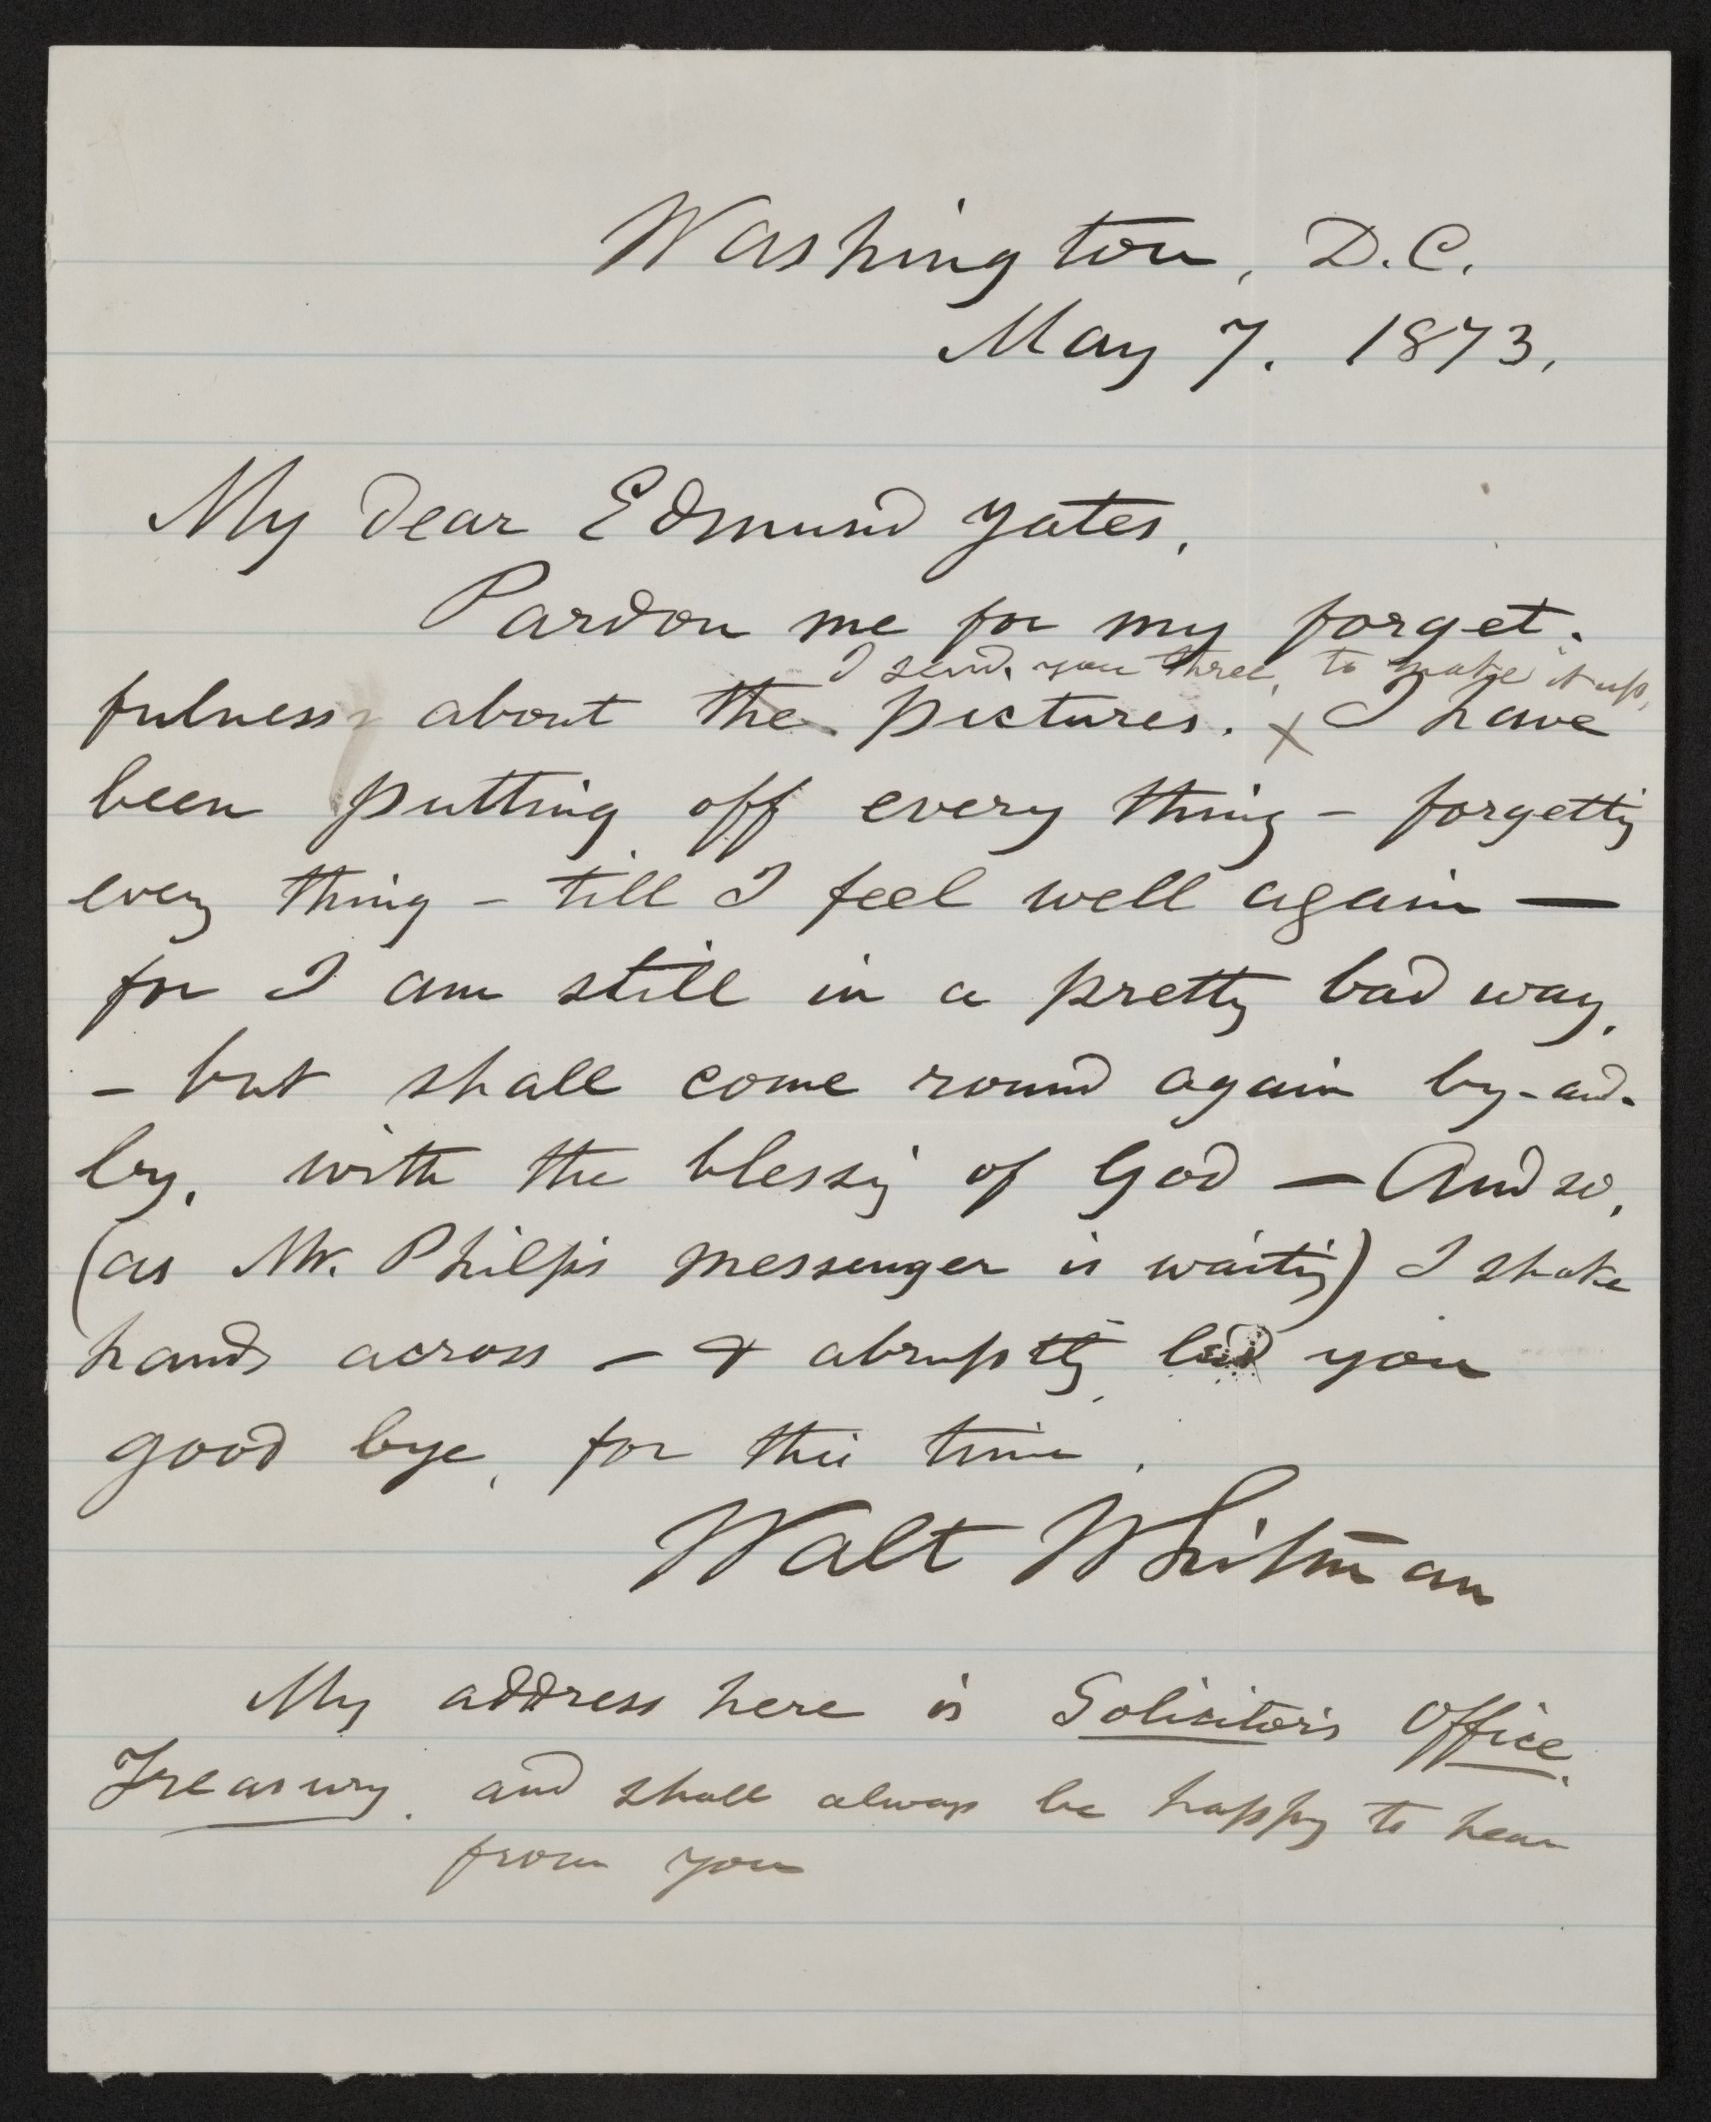 Washington, D.C.
May 7. 1873.
My dear Edmund Yates,
Pardon me for my forget-
I send you three, to make it up,
fulness about the pictures. x I have
been putting off every thing - forgetting
every thing - till I feel well again —
for I am still in a pretty bad way,
- but shall come round again by-and-
by, with the blessing of God — And so,
(as Mr. Philp's messenger is waiting) I shake
hands across - & abruptly bid you
good bye, for this time.
Walt Whitman
My address here is Solicitor's Office,
Treasury. and shall always be happy to hear
from you